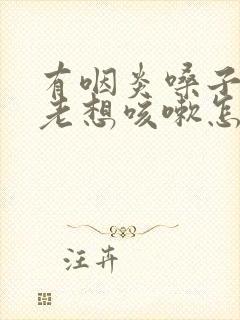 有咽炎嗓子
老想咳嗽怎
汪卉